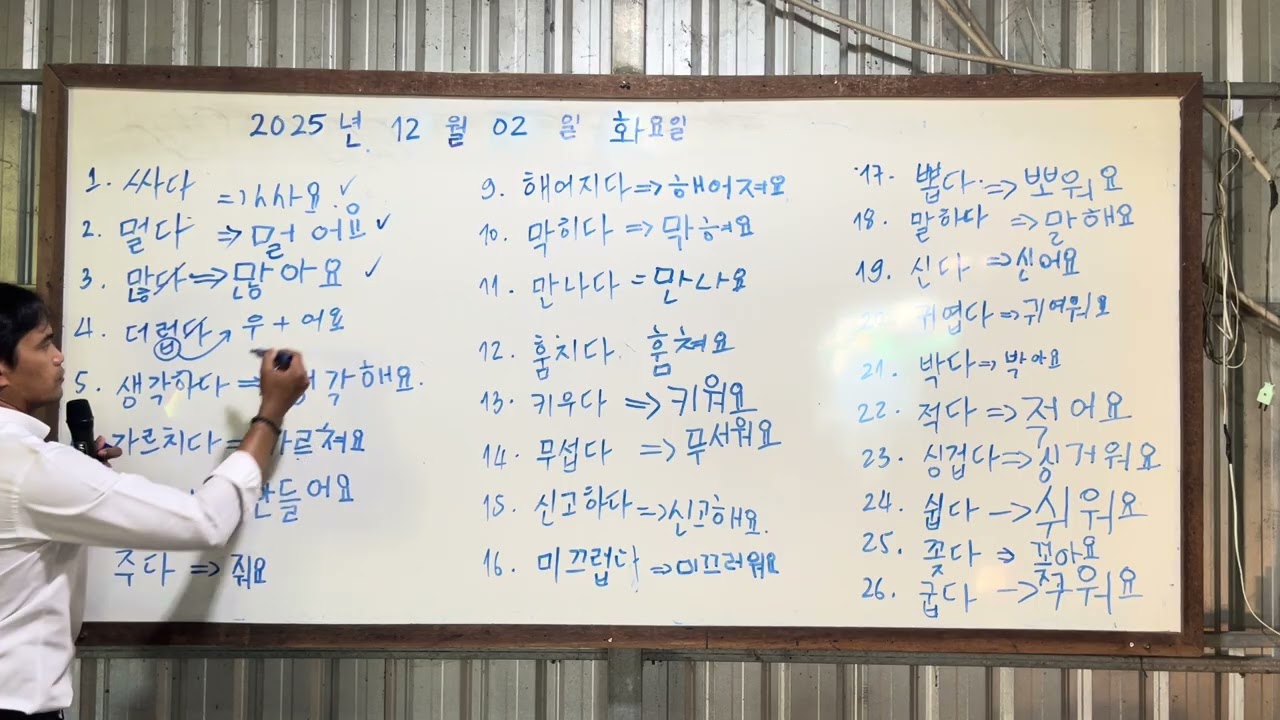 2025년 12월 02일 화요일
1. 싸다 = 싸요 ✓
2. 멀다 ⇒ 멀어요 ✓
3. 많다 ⇒ 많아요 ✓
4. 더럽다 → 우 + 어요
5. 생각하다 ⇒ 각해요.
가르치다 ⇒ 가르쳐요
만들어요
주다 ⇒ 줘요
9. 해어지다 ⇒ 해어져요
10. 막히다 ⇒ 막혀요
11. 만나다 = 만나요
12. 훔치다 훔쳐요
13. 키우다 ⇒ 키워요
14. 무섭다 ⇒ 무서워요
15. 신고하다 ⇒ 신고해요.
16. 미끄럽다 ⇒ 미끄러워요
17. 뽑다 ⇒ 뽀워요
18. 말하다 ⇒ 말해요
19. 신다 ⇒ 신어요
20. 귀엽다 ⇒ 귀여워요
21. 박다 ⇒ 박아요
22. 적다 ⇒ 적어요
23. 싱겁다 ⇒ 싱거워요
24. 쉽다 → 쉬워요
25. 꽂다 ⇒ 꽂아요
26. 굽다 → 구워요